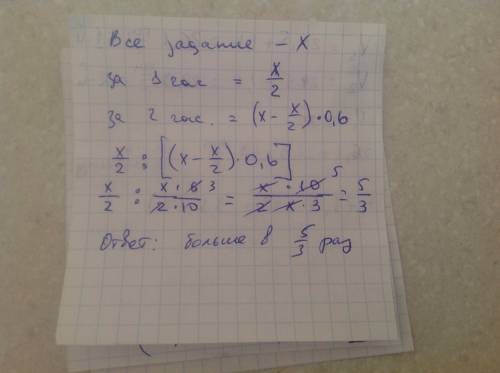 Все задание – X
За 1 час = X/2
За 2 час. = (x – x/2) · 0,6
x/2 : [(x – x/2) · 0,6]
x/2 : x · 6 3 / 2 · 10 = x · 10 5 / 2 x · 3 = 5/3
Ответ: больше в 5/3 раз